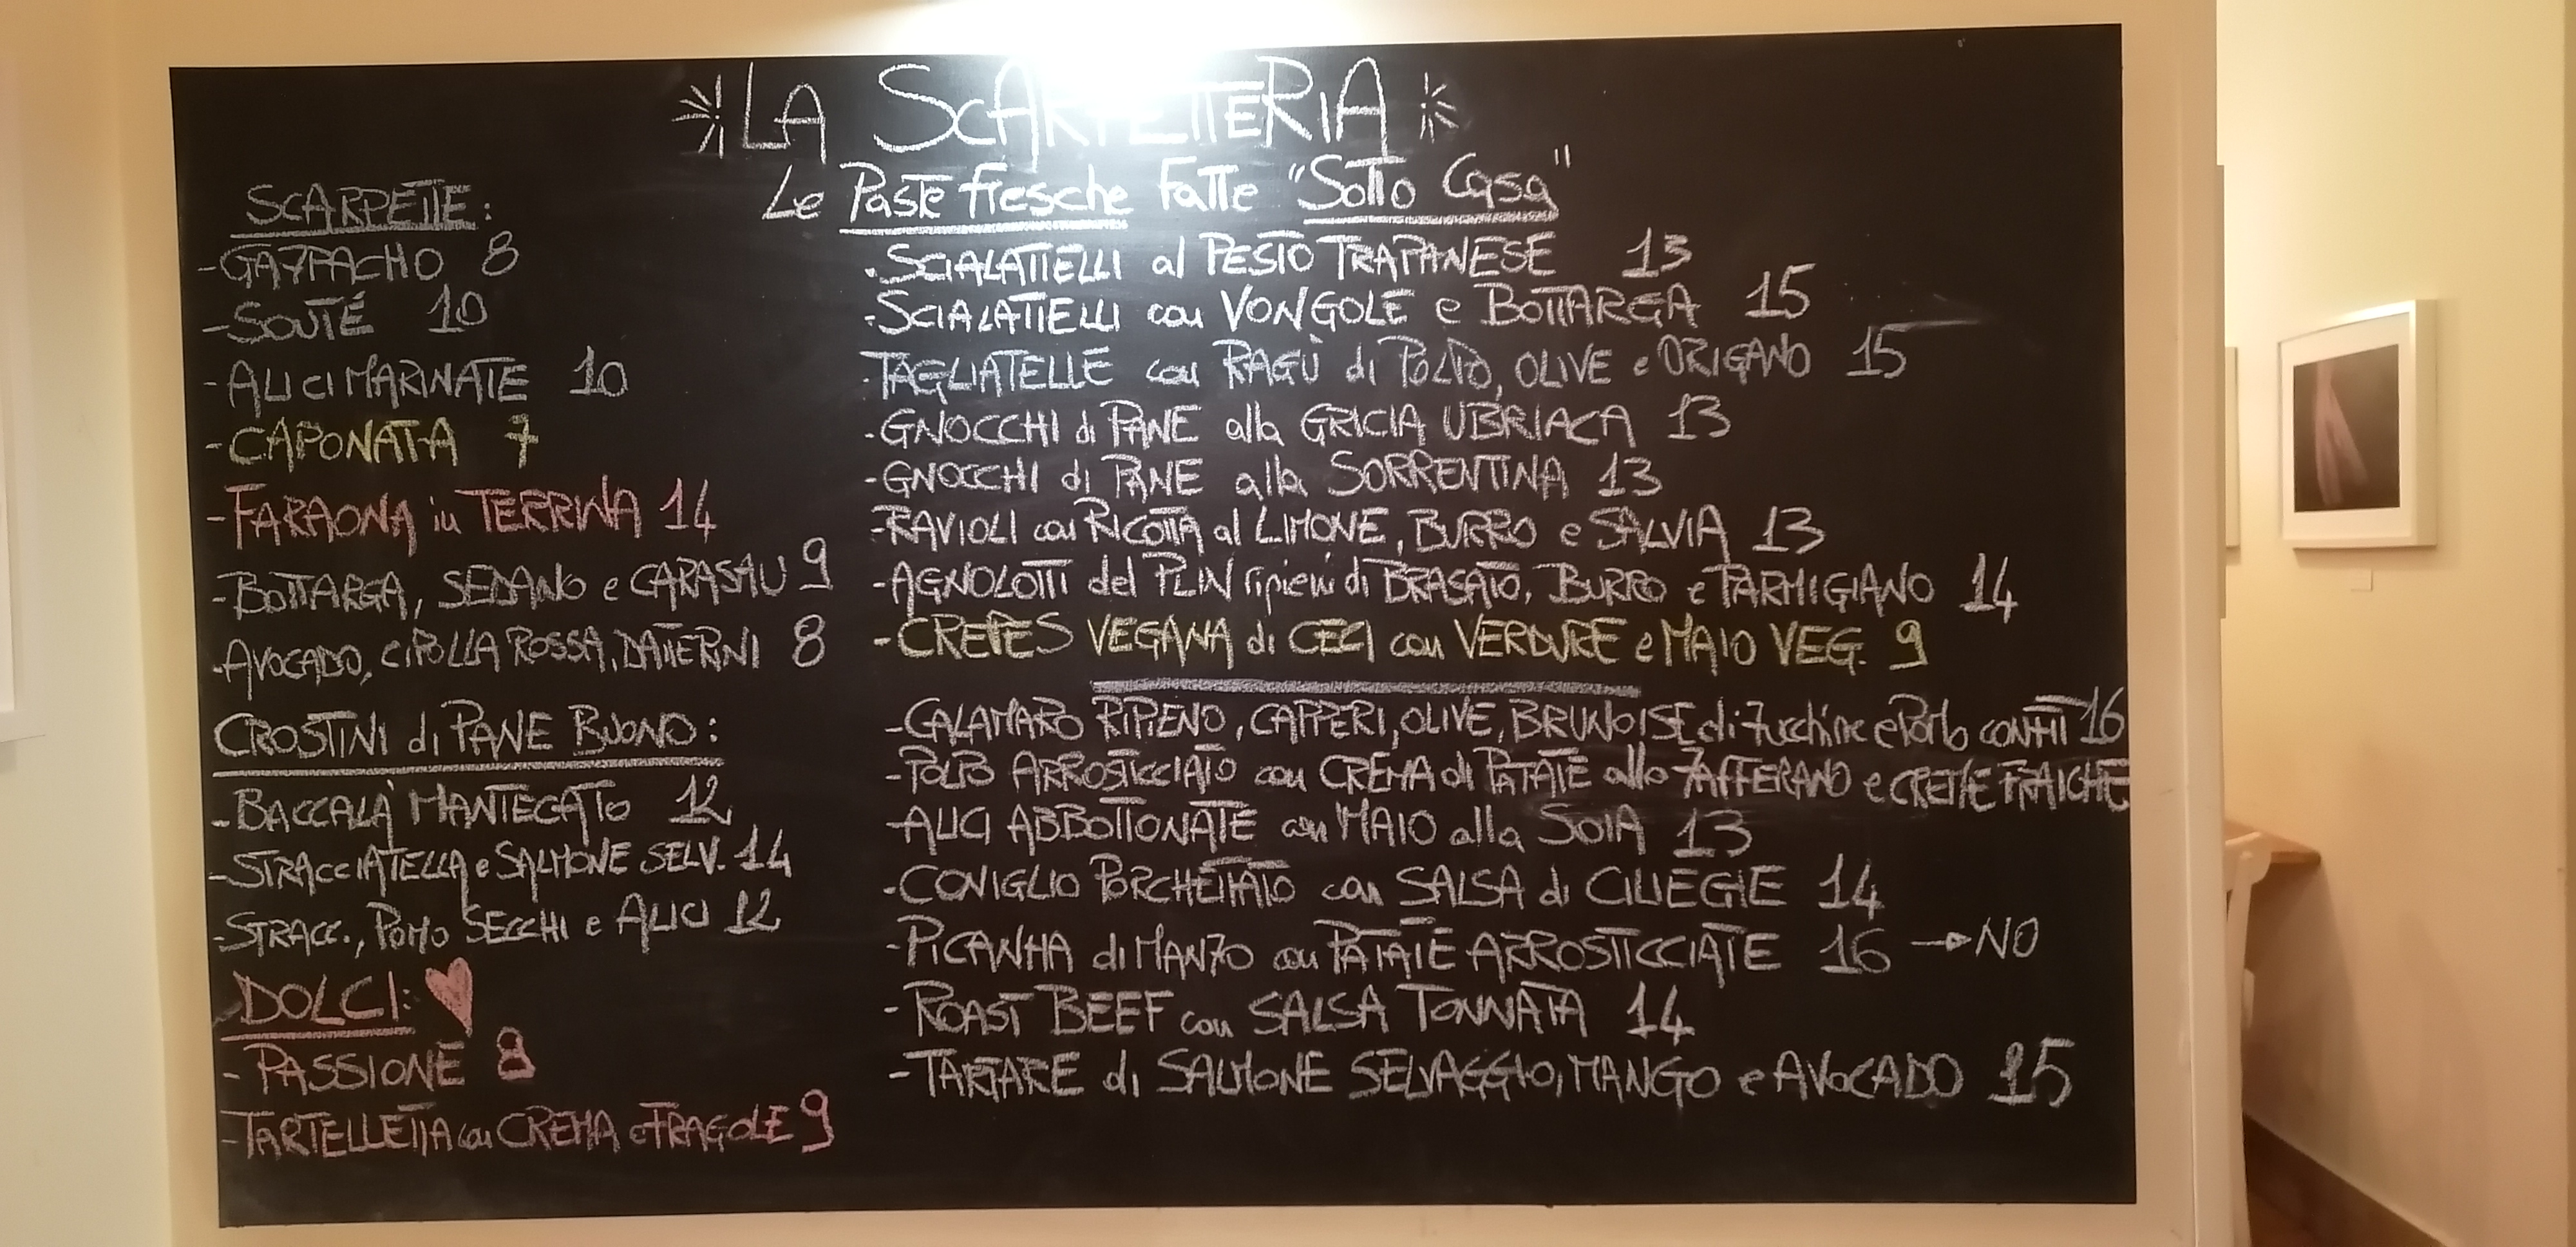 LA SCARPETTERIA
Le Paste fresche Fatte "Sotto Casa"
SCARPETTE:
-GAZPACHO 8
-SOUTÉ 10
-ALICI MARINATE 10
-CAPONATA 7
-FARAONA in TERRINA 14
-BOTTARGA, SEDANO e CARASAU 9
-AVOCADO, CIPOLLA ROSSA, DATTERINI 8
CROSTINI di PANE BUONO:
-BACCALÀ MANTECATO 12
-STRACCIATELLA e SALMONE SELV. 14
-STRACC., POMO SECCHI e ALICI 12
DOLCI:
-PASSIONE 8
-TARTELLETTA con CREMA e FRAGOLE 9
-SCIALATIELLI al PESTO TRAPANESE 13
-SCIALATIELLI con VONGOLE e BOTTARGA 15
-TAGLIATELLE con RAGÙ di POLPO, OLIVE e ORIGANO 15
-GNOCCHI di PANE alla GRICIA UBRIACA 13
-GNOCCHI di PANE alla SORRENTINA 13
-RAVIOLI con RICOTTA al LIMONE, BURRO e SALVIA 13
-AGNOLOTTI del PLIN ripieni di BRASATO, BURRO e PARMIGIANO 14
-CREPES VEGANA di CECI con VERDURE e MAIO VEG. 9
-CALAMARO RIPIENO, CAPPERI, OLIVE, BRUNOISE di Zucchine e Pomo confit 16
-POLPO ARROSTICCIATO con CREMA di PATATE allo ZAFFERANO e CREME FRAICHE
-ALICI ABBOTTONATE con MAIO alla SOIA 13
-CONIGLIO PORCHETTATO con SALSA di CILIEGIE 14
-PICANHA di MANZO con PATATE ARROSTICCIATE 16 → NO
-ROAST BEEF con SALSA TONNATA 14
-TARTARE di SALMONE SELVAGGIO, MANGO e AVOCADO 15